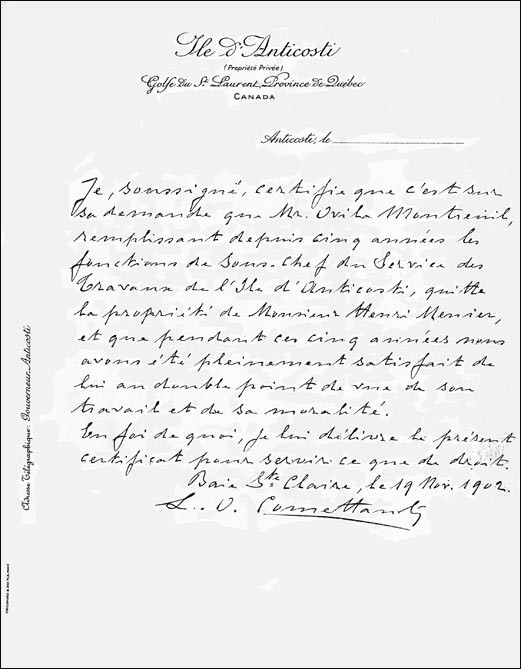 Ile d'Anticosti
(Propriété Privée)
Golfe du St. Laurent, Province de Québec
CANADA
Anticosti, le
Je, soussigné, certifie que c'est sur
sa demande que Mr. Ovila Montreuil,
remplissant depuis cinq années les
fonctions de Sous-Chef du Service des
Travaux de l'Ile d'Anticosti, quitte
la propriété de Monsieur Henri Menier,
et que pendant ces cinq années nous
avons été pleinement satisfait de
lui au double point de vue de son
travail et de sa moralité.
En foi de quoi, je lui délivre le présent
certificat pour servir ce que de droit.
Baie Ste Claire, le 19 Nov. 1902.
L. O. Comettant
Adresse Télégraphique: Gouverneur Anticosti